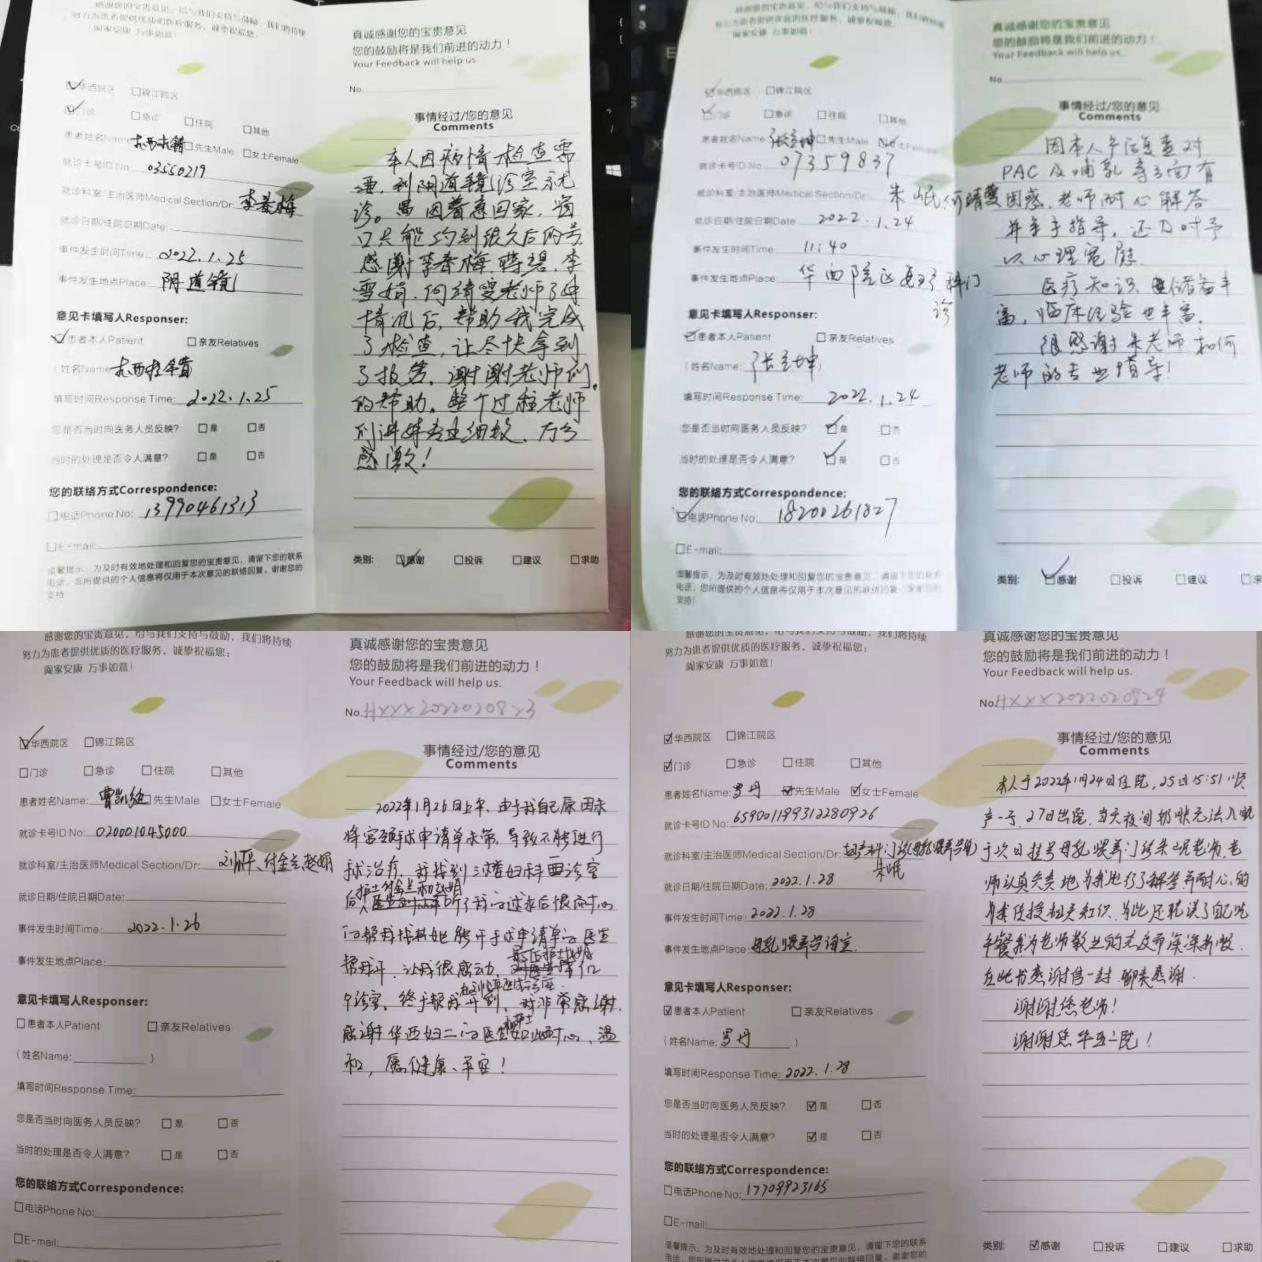 感谢您的宝贵意见，给与我们支持与鼓励，我们将持续
努力为患者提供优质的医疗服务，诚挚祝福您：
阖家安康 万事如意！
华西院区 锦江院区
门诊 急诊 住院 其他
患者姓名Name: 先生Male 女士Female
就诊卡号ID No: 03550219
就诊科室/主治医师Medical Section/Dr: 李春梅
就诊日期/住院日期Date
事件发生时间Time: 2022.1.25
事件发生地点Place: 阴道镜
意见卡填写人Responser:
患者本人Patient 亲友Relatives
(姓名Name:
填写时间Response Time: 2022.1.25
您是否当时向医务人员反映？ 是 否
当时的处理是否令人满意？ 是 否
您的联络方式Correspondence:
电话Phone No: 13990461313
E-mail:
温馨提示：为及时有效地处理和回复您的宝贵意见，请留下您的联系
电话，您所提供的个人信息将仅用于本次意见的联络回复。谢谢您的
支持
真诚感谢您的宝贵意见
您的鼓励将是我们前进的动力！
Your Feedback will help us.
No.
事情经过/您的意见
Comments
本人因病情检查需
要，到阴道镜诊室就
诊。因着急回家，窗
口只能约到很久后的号
感谢李春梅、蒋碧、李
雪娟、何靖雯老师了解
情况后，帮助我完成
了检查，让尽快拿到
了报告，谢谢老师们
的帮助。整个过程老师
们讲解专业细致，万分
感激！
类别: 感谢 投诉 建议 求助
努力为患者提供优质的医疗服务，诚挚祝福您:
阖家安康 万事如意！
华西院区 锦江院区
门诊 急诊 住院 其他
患者姓名Name: 张立坤 先生Male 女士Female
就诊卡号ID No: 07359837
就诊科室/主治医师Medical Section/Dr: 朱岷 何靖雯
就诊日期/住院日期Date 2022.1.24
事件发生时间Time: 11:40
事件发生地点Place: 华西院区 科门
诊
意见卡填写人Responser:
患者本人Patient 亲友Relatives
(姓名Name: 张立坤 )
填写时间Response Time: 2022.1.24
您是否当时向医务人员反映？ 是 否
当时的处理是否令人满意？ 是 否
您的联络方式Correspondence:
电话Phone No: 18200261827
E-mail:
温馨提示：为及时有效地处理和回复您的宝贵意见，请留下您的联系
电话，您所提供的个人信息将仅用于本次意见的联络回复。谢谢您的
支持!
真诚感谢您的宝贵意见
您的鼓励将是我们前进的动力！
Your Feedback will help us.
No.
事情经过/您的意见
Comments
因本人产后复查对
PAC及哺乳等方面有
困惑，老师耐心解答
并亲手指导，还及时予
以心理宽慰
医疗知识储备丰
富，临床经验也丰富，
很感谢朱老师和何
老师的专业指导！
类别: 感谢 投诉 建议 求
感谢您的宝贵意见，给与我们支持与鼓励，我们将持续
努力为患者提供优质的医疗服务，诚挚祝福您：
阖家安康 万事如意！
华西院区 锦江院区
门诊 急诊 住院 其他
患者姓名Name: 先生Male 女士Female
就诊卡号ID No: 020001045000
就诊科室/主治医师Medical Section/Dr:
就诊日期/住院日期Date:
事件发生时间Time: 2022.1.26
事件发生地点Place:
意见卡填写人Responser:
患者本人Patient 亲友Relatives
(姓名Name: )
填写时间Response Time:
您是否当时向医务人员反映？ 是 否
当时的处理是否令人满意？ 是 否
您的联络方式Correspondence:
电话Phone No:
E-mail:
真诚感谢您的宝贵意见
您的鼓励将是我们前进的动力！
Your Feedback will help us.
No. HXXX2022020823
事情经过/您的意见
Comments
2022年1月26日上午，由于我自己原因未
将宫颈手术申请单带，导致不能进行
手术治疗，并找到三楼妇科西诊室
听了我的请求后很耐心
的帮我找其他能开手术申请单的医生
帮我开，让我很感动
诊室，终于帮我开到，非常感谢，
感谢华西妇二的医生 如此耐心、温
和，愿健康、平安！
感谢您的宝贵意见，给与我们支持与鼓励，我们将持续
努力为患者提供优质的医疗服务，诚挚祝福您：
阖家安康 万事如意！
华西院区 锦江院区
门诊 急诊 住院 其他
患者姓名Name: 罗丹 先生Male 女士Female
就诊卡号ID No: 659001199312280926
就诊科室/主治医师Medical Section/Dr:
朱岷
就诊日期/住院日期Date: 2022.1.28
事件发生时间Time: 2022.1.28
事件发生地点Place: 母乳喂养咨询室
意见卡填写人Responser:
患者本人Patient 亲友Relatives
(姓名Name: 罗丹 )
填写时间Response Time: 2022.1.28
您是否当时向医务人员反映？ 是 否
当时的处理是否令人满意？ 是 否
您的联络方式Correspondence:
电话Phone No: 17709923165
E-mail:
温馨提示：为及时有效地处理和回复您的宝贵意见，请留下您的联系
真诚感谢您的宝贵意见
您的鼓励将是我们前进的动力！
Your Feedback will help us.
No. HXXX2022020824
事情经过/您的意见
Comments
本人于2022年1月24日住院，25日15:51顺
产一子，27日出院，当天夜间奶胀无法入眠
于次日挂号母乳喂养门诊朱岷老师，老
师认真负责地为我进行了解答并耐心的
传授相关知识，为此还耽误了自己吃
午餐，我为老师敬业的态度而深深折服
在此书感谢信一封，聊表感谢。
谢谢您老师！
谢谢您华西二院！
类别: 感谢 投诉 建议 求助